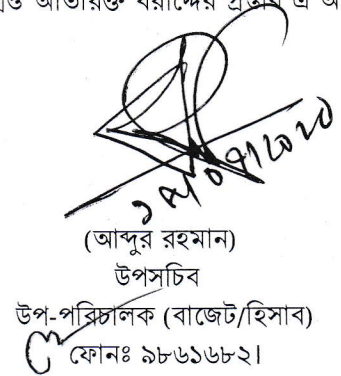 অতিরিক্ত বরাদ্দের প্রস্তাব এ অ
(আব্দুর রহমান)
উপসচিব
উপ-পরিচালক (বাজেট/হিসাব)
ফোনঃ ৯৮৬১৬৮২।